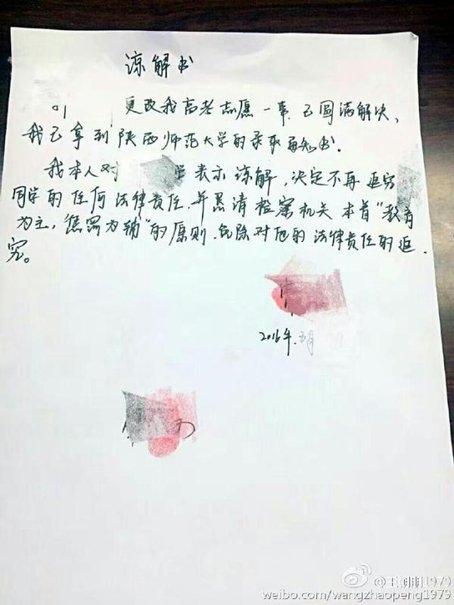 谅解书
更改我高考志愿一事，已圆满解决，
我已拿到陕西师范大学的录取通知书.
我本人对 表示谅解，决定不再追究
同学的任何法律责任.并恳请检察机关本着"教育
为主，惩罚为辅"的原则.免除对他的法律责任的追
究。
2016年.
weibo.com/wangzhaopeng1979